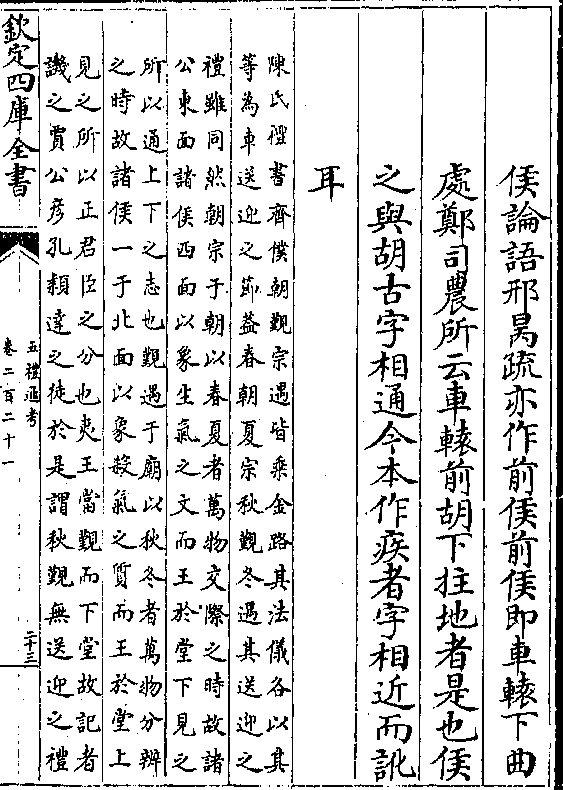 侯論語邢昺疏亦作前侯前侯即車轅下曲
處鄭司農所云車轅前胡下拄地者是也侯
之與胡古字相通今本作疾者字相近而訛
耳
陳氏禮書齊僕朝覲宗遇皆乘金路其法儀各以其
等為車送迎之節葢春朝夏宗秋覲冬遇其送迎之
禮雖同然朝宗于朝以春夏者萬物交際之時故諸
公東面諸侯西面以象生氣之文而王於堂下見之
所以通上下之志也覲遇于廟以秋冬者萬物分辨
之時故諸侯一于北面以象殺氣之質而王於堂上
見之所以正君臣之分也夷王當覲而下堂故記者
譏之賈公彦孔頴達之徒於是謂秋覲無送迎之禮
欽定四庫全書
五禮通考
卷二百二十一
二十三